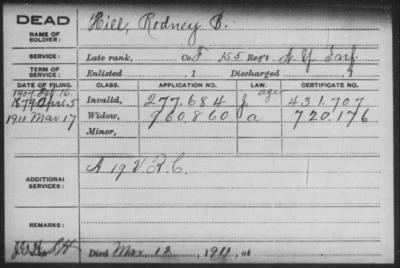 DEAD
NAME OF SOLDIER: Hill, Rodney D.
SERVICE: Late rank, Co. F 155 Reg't N. Y. Inf.
TERM OF SERVICE: Enlisted , 1 Discharged , 1
DATE OF FILING. CLASS. APPLICATION NO. LAW. CERTIFICATE NO.
1907 Feb. 16. age
1879 Apr. 5 Invalid, 277.684 431.707
1911 Mar 17 Widow, 960.860 a 720.176
Minor,
ADDITIONAL SERVICES: A 19 V.R.C.
REMARKS:
Died Mar. 12, 1911, at